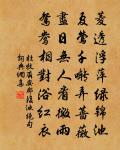 菱透浮萍綠錦池
夏鶯千囀弄薔薇
盡日無人看微雨
鴛鴦相對浴紅衣
杜牧齊安郡後池絕句
詞典網集